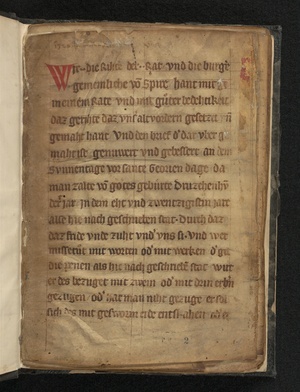 Wir die Rihte der Rat vnd die burg͛
gemeinliche vō Spire hant mit ge
meinem Rate vnd mit gůter bedehtikeit
daz gerihte daz vnſ altvordern geſetzet vn̄
gemaht hant Vnd den brief d͛ dar vber ge
maht iſt genuwert vnd gebeſſert an dem
Svnnentage vor ſante Georien dage da
man zalte vō gotes gebürte Druzehenhv̄
dert Jar in dem eht vnd zwenzigiſtin jar
alſe hie nach geſchriben ſtet durch daz
daz fride vnde zuht vnd͛ vns ſi vnd wer
miſſetůt mit worten od͛ mit werken d͛ git
die penen als hie nach geſchriebē ſtet wirt
er des bezuget mit zwein od͛ mit drin erbn̄
gezugen od͛ hat man niht gezuge er ſol
ſich des mit geſworn eide